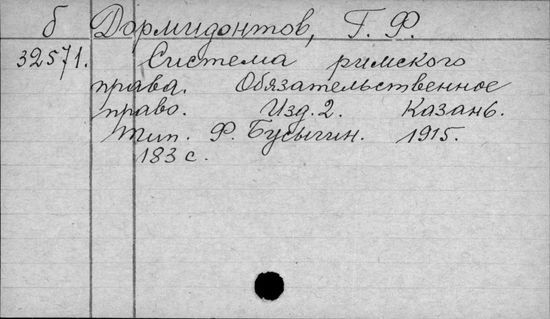 б Дормидонтов, Г. Ф.
32571. Система римского
права. Обязательственное
право. Изд. 2. Казань.
тип. Ф. Бусыгин. 1915.
183 с.